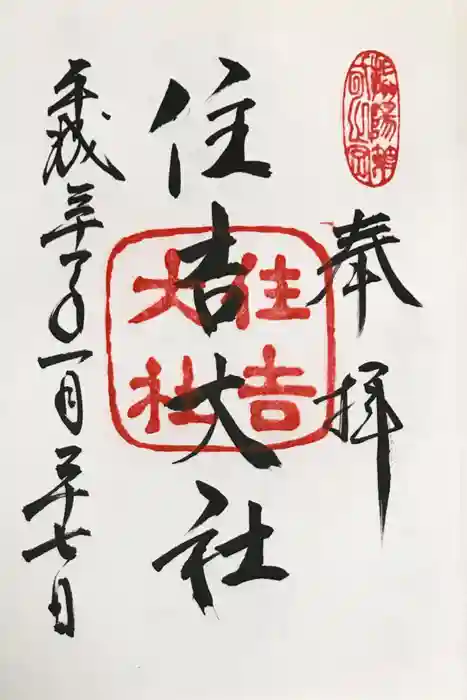 奉拝
住吉大社
住吉
大社
平成三十年一月二十七日